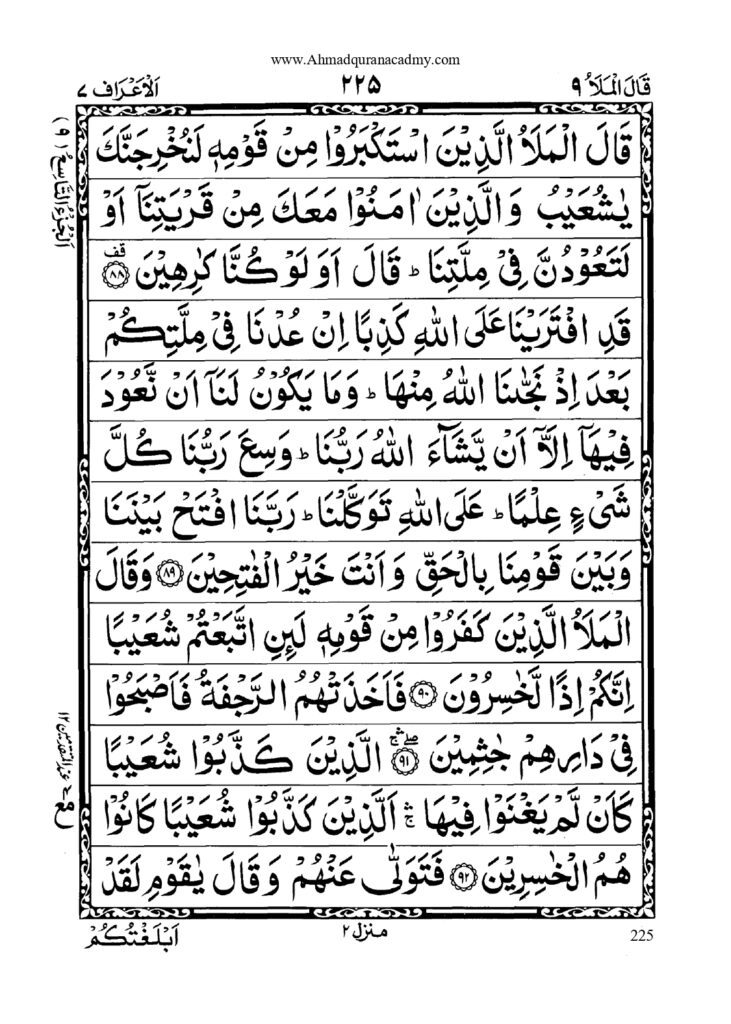 www.Ahmadquranacadmy.com
قَالَ الْمَلَاُ ۹
۲۲۵
اَلْاَعْرَاف ۷
قَالَ الْمَلَاُ الَّذِیْنَ اسْتَكْبَرُوْا مِنْ قَوْمِهٖ لَنُخْرِجَنَّكَ
یٰشُعَیْبُ وَالَّذِیْنَ اٰمَنُوْا مَعَكَ مِنْ قَرْیَتِنَاۤ اَوْ
لَتَعُوْدُنَّ فِیْ مِلَّتِنَا ؕ قَالَ اَوَ لَوْ كُنَّا كٰرِهِیْنَ ۟ قف ﴿۸۸﴾
قَدِ افْتَرَیْنَا عَلَی اللّٰهِ كَذِبًا اِنْ عُدْنَا فِیْ مِلَّتِكُمْ
بَعْدَ اِذْ نَجّٰىنَا اللّٰهُ مِنْهَا ؕ وَمَا یَكُوْنُ لَنَاۤ اَنْ نَّعُوْدَ
فِیْهَاۤ اِلَّاۤ اَنْ یَّشَآءَ اللّٰهُ رَبُّنَا ؕ وَسِعَ رَبُّنَا كُلَّ
شَیْءٍ عِلْمًا ؕ عَلَی اللّٰهِ تَوَكَّلْنَا ؕ رَبَّنَا افْتَحْ بَیْنَنَا
وَبَیْنَ قَوْمِنَا بِالْحَقِّ وَاَنْتَ خَیْرُ الْفٰتِحِیْنَ ﴿۸۹﴾ وَقَالَ
الْمَلَاُ الَّذِیْنَ كَفَرُوْا مِنْ قَوْمِهٖ لَىِٕنِ اتَّبَعْتُمْ شُعَیْبًا
اِنَّكُمْ اِذًا لَّخٰسِرُوْنَ ﴿۹۰﴾ فَاَخَذَتْهُمُ الرَّجْفَةُ فَاَصْبَحُوْا
فِیْ دَارِهِمْ جٰثِمِیْنَ ﴿۹۱﴾ الَّذِیْنَ كَذَّبُوْا شُعَیْبًا
كَاَنْ لَّمْ یَغْنَوْا فِیْهَا ۛۚ اَلَّذِیْنَ كَذَّبُوْا شُعَیْبًا كَانُوْا
هُمُ الْخٰسِرِیْنَ ﴿۹۲﴾ فَتَوَلّٰی عَنْهُمْ وَقَالَ یٰقَوْمِ لَقَدْ
اَلْجُزْءُ التَّاسِعُ (۹)
مع
عند المتقدمین ۱۲
منزل ۲
اَبْلَغْتُكُمْ
225